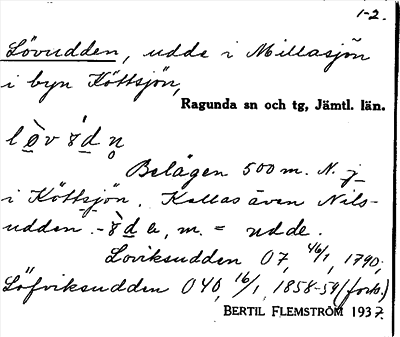 1-2.
Lövudden, udde i Millasjön
i byn Köttsjön,
Ragunda sn och tg, Jämtl. län.
Belägen 500 m. N. j
i Köttsjön. Kallas även Nils-
udden. m. = udde.
Loviksudden 07, 46/1, 1790;
Löfviksudden 040, 16/1, 1858-59 (fork.)
BERTIL FLEMSTRÖM 1937.